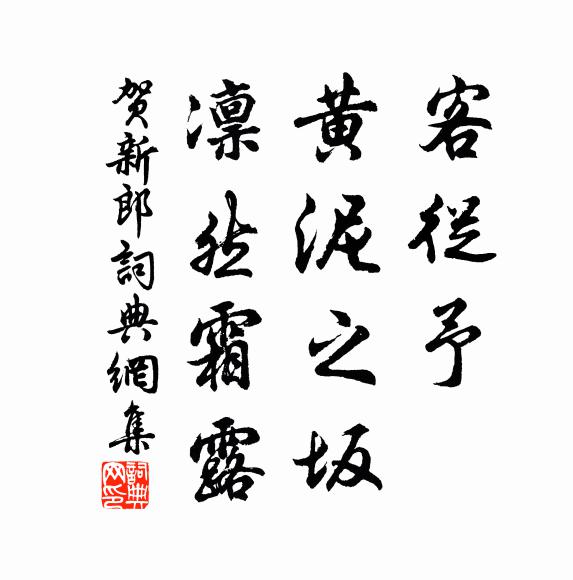 客從予
黃泥之坂
凜然霜露
賀新郎詞典網集
詞典网印